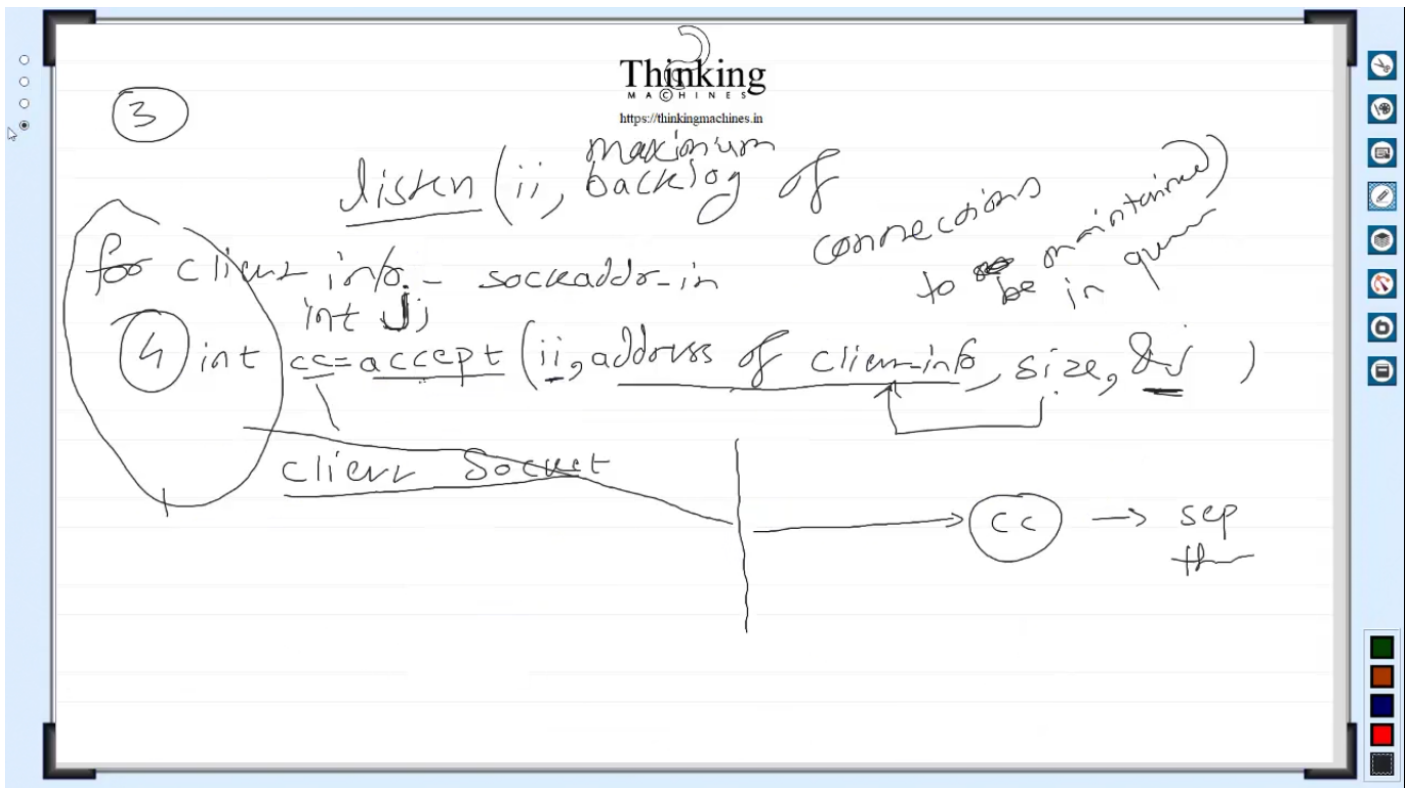 Thinking
MACHINES
https://thinkingmachines.in
3
listen (ii, maximum backlog of connections to be maintained in queue)
for client info - sockaddr_in
int j;
4 int cc=accept (ii, address of client_info, size, &j )
client Socket
cc → sep
th